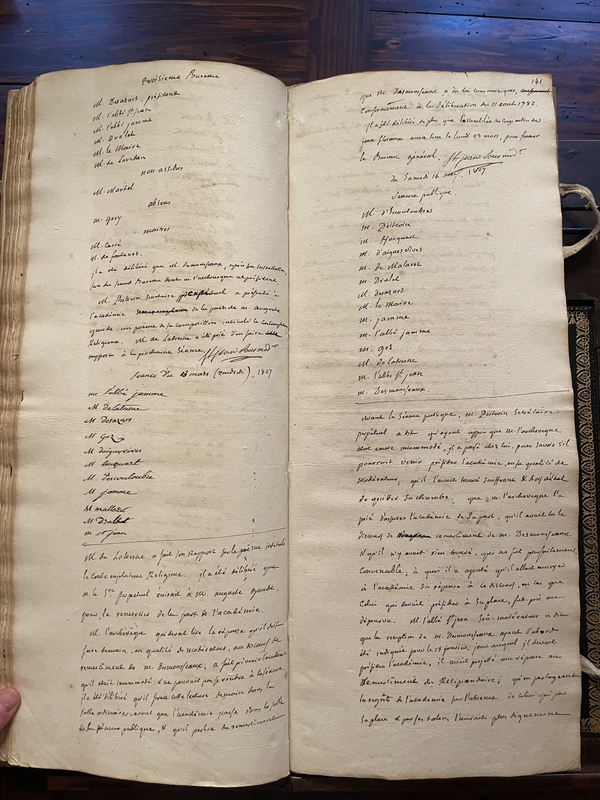 Troisieme Bureau
M. Desazars, président
M. l'abbé St jean
M. l'abbé jamme
M. Dralet
M. le Maire
M. de
non assidus
M. Martel
absens
M. Gary
mairies
M. Carré
M. de fontanes.
il a été délibéré que M. Desmousseaux, après son installation,
M. Poitevin, Secretaire perpétuel a présenté à
l'académie de la part de M. auguste
quinde, un poëme de sa composition intitulé
Religieux. M. de Latresne a été prié d'en faire
rapport à la prochaine Séance. St jean Sousmodr
Seance du 13 mars (vendredi), 1807
M. l'abbé jamme
M Delatresne
M Desazars
M Gez
M daiguesvives
M hocquart
M descouloubre
M jamme
M mallaret
M Dralet
M St jean
M. de Latresne a fait son Rapport sur le poëme intitulé
le contemplateur Religieux. il a été délibéré que
M. le Sre perpetuel écrirait à M. auguste quinde,
pour le remercier de la part de l'académie.
M. l'archevêque qui devait lire la réponse qu'il doit
faire demain, en qualité de modérateur, au discours de
remerciment de M. Desmousseaux, a fait prévenir l'académie
qu'il était incommodé & ne pouvait pas se rendre à la séance,
il a été délibéré qu'il ferait cette lecture demain dans la
salle ordinaire, avant que l'académie passe dans la salle
de la séance publique, & qu'il portera du remerciment
141
que M. Desmousseaux a du lui communiquer,
conformément à la délibération du 11 aout 1742.
il a été délibéré de plus que l'assemblée
jeux floraux aura lieu le lundi 23 mars, pour former
le Bureau général. St jean Sousmodr
du Samedi 14 mars, 1807
Seance publique.
M. d'Escouloubres
M. Poitevin
M. Hocquart
M. d'aiguesvives
M. de Malaret
M. Dralet
M. Desazars
M. le Maire
M. jamme
M. l'abbé jamme
M. Gez
M. de latresne
M. l'abbé St jean
M. Desmousseaux.
avant la Séance publique, M. Poitevin Secrétaire
perpetuel a dit qu'ayant appris que M. l'archevêque
était encore incommodé, il a passé chez lui, pour savoir s'il
pourroit venir présider l'académie, en sa qualité de
Modérateur, qu'il l'avait trouvé souffrant & hors d'état
de quitter sa chambre, que M. l'archevêque l'a
prié d'assurer l'académie de sa part, qu'il avait lu le
discours de remerciment de M. Desmousseaux
& qu'il n'y avait rien trouvé, qui ne fut parfaitement
convenable; à quoi il a ajouté qu'il allait envoyer
à l'académie sa réponse à ce discours, en cas que
celui qui devait présider à sa place, fut pris au
dépourvu. M. l'abbé St jean Sous-modérateur a dit
que la reception de M. Desmousseaux ayant d'abord
été indiquée pour le 25 janvier, jour auquel il devait
présider l'académie, il avait projetté une réponse au
Remerciment du Récipiendaire; qu'en partageant
les regrets de l'académie sur l'absence de celui qui
Sa place & par ses talens l'aurait plus dignement